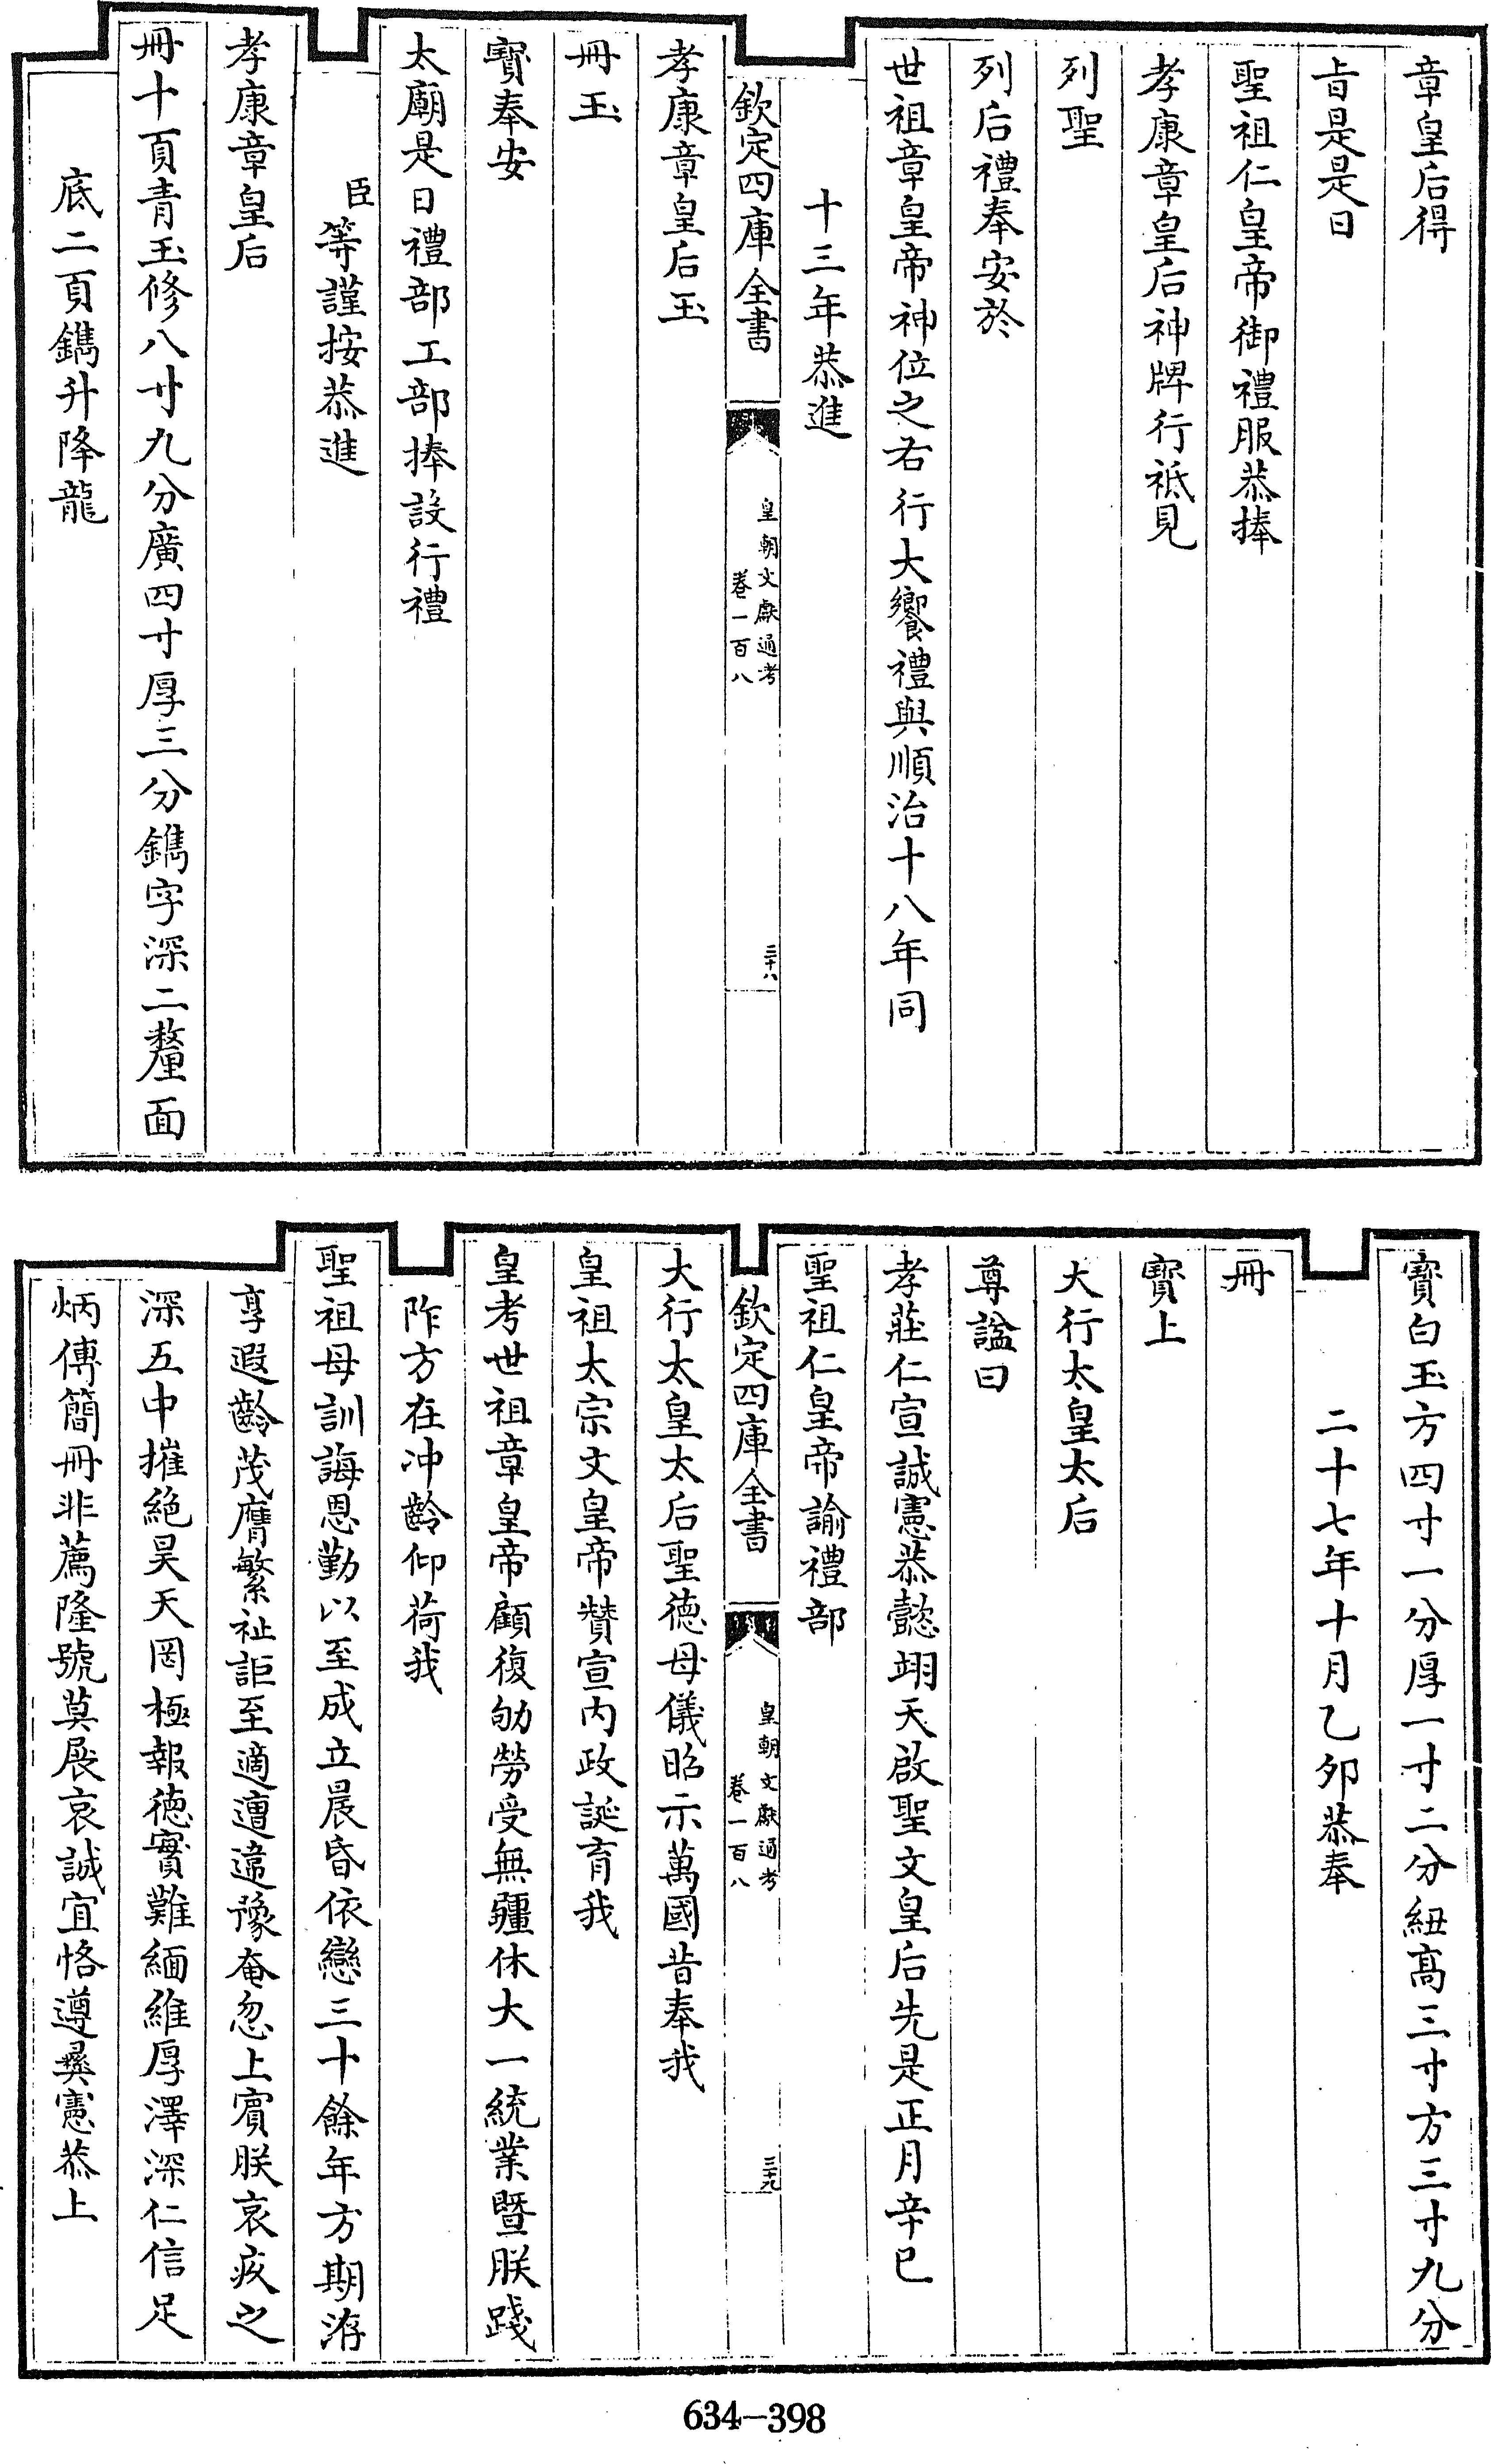 章皇后得
㫖是是日
聖祖仁皇帝御禮服恭捧
孝康章皇后神牌行祗見
列聖
列后禮奉安於
世祖章皇帝神位之右行大饗禮與順治十八年同
十三年恭進
欽定四庫全書
皇朝文獻通考
卷一百八
三十八
孝康章皇后玉
冊玉
寳奉安
太廟是日禮部工部捧設行禮
臣等謹按恭進
孝康章皇后
冊十頁青玉修八寸九分廣四寸厚三分鐫字深二釐面
底二頁鐫升降龍
寳白玉方四寸一分厚一寸二分紐髙三寸方三寸九分
二十七年十月乙夘恭奉
冊
寳上
大行太皇太后
尊諡曰
孝莊仁宣誠憲恭懿翊天啟聖文皇后先是正月辛巳
聖祖仁皇帝諭禮部
欽定四庫全書
皇朝文獻通考
卷一百八
三十九
大行太皇太后聖徳母儀昭示萬國昔奉我
皇祖太宗文皇帝贊宣内政誕育我
皇考世祖章皇帝顧復劬勞受無疆休大一統業暨朕踐
阼方在冲齡仰荷我
聖祖母訓誨恩勤以至成立晨昏依戀三十餘年方期洊
享遐齡茂膺繁祉詎至適遭違豫奄忽上賓朕哀疚之
深五中摧絶昊天罔極報徳實難緬維厚澤深仁信足
炳傳簡冊非薦隆號莫展哀誠宜恪遵彞憲恭上
634-398